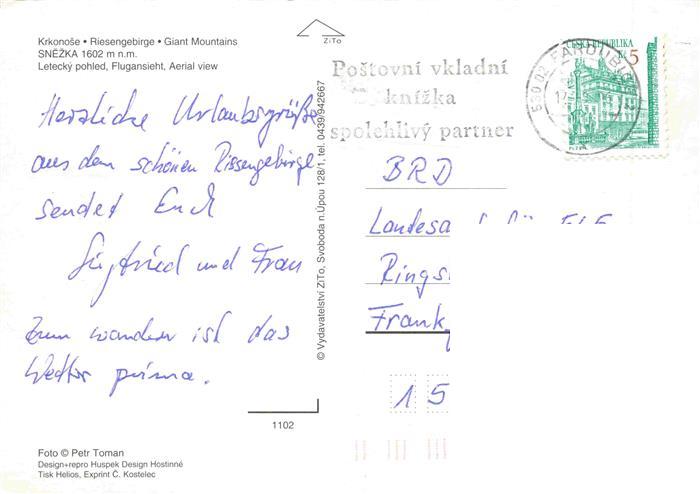 Krkonoše • Riesengebirge • Giant Mountains
SNĚŽKA 1602 m n.m.
Letecký pohled, Flugansicht, Aerial view
ZiTo
Herzliche Urlaubsgrüße
aus dem schönen Rissengebirge
sendet Euch
Siegfried und Frau
Zum wandern ist das
Wetter prima.
© Vydavatelství ZiTo, Svoboda n.Úpou 128/1; tel. 0439/942667
1102
Foto © Petr Toman
Design+repro Huspek Design Hostinné
Tisk Helios, Exprint Č. Kostelec
Poštovní vkladní
knížka
spolehlivý partner
530 02 PARDUBICE
ČESKÁ REPUBLIKA
Kč 5
BRD
Landesa
Rings
Frank
15